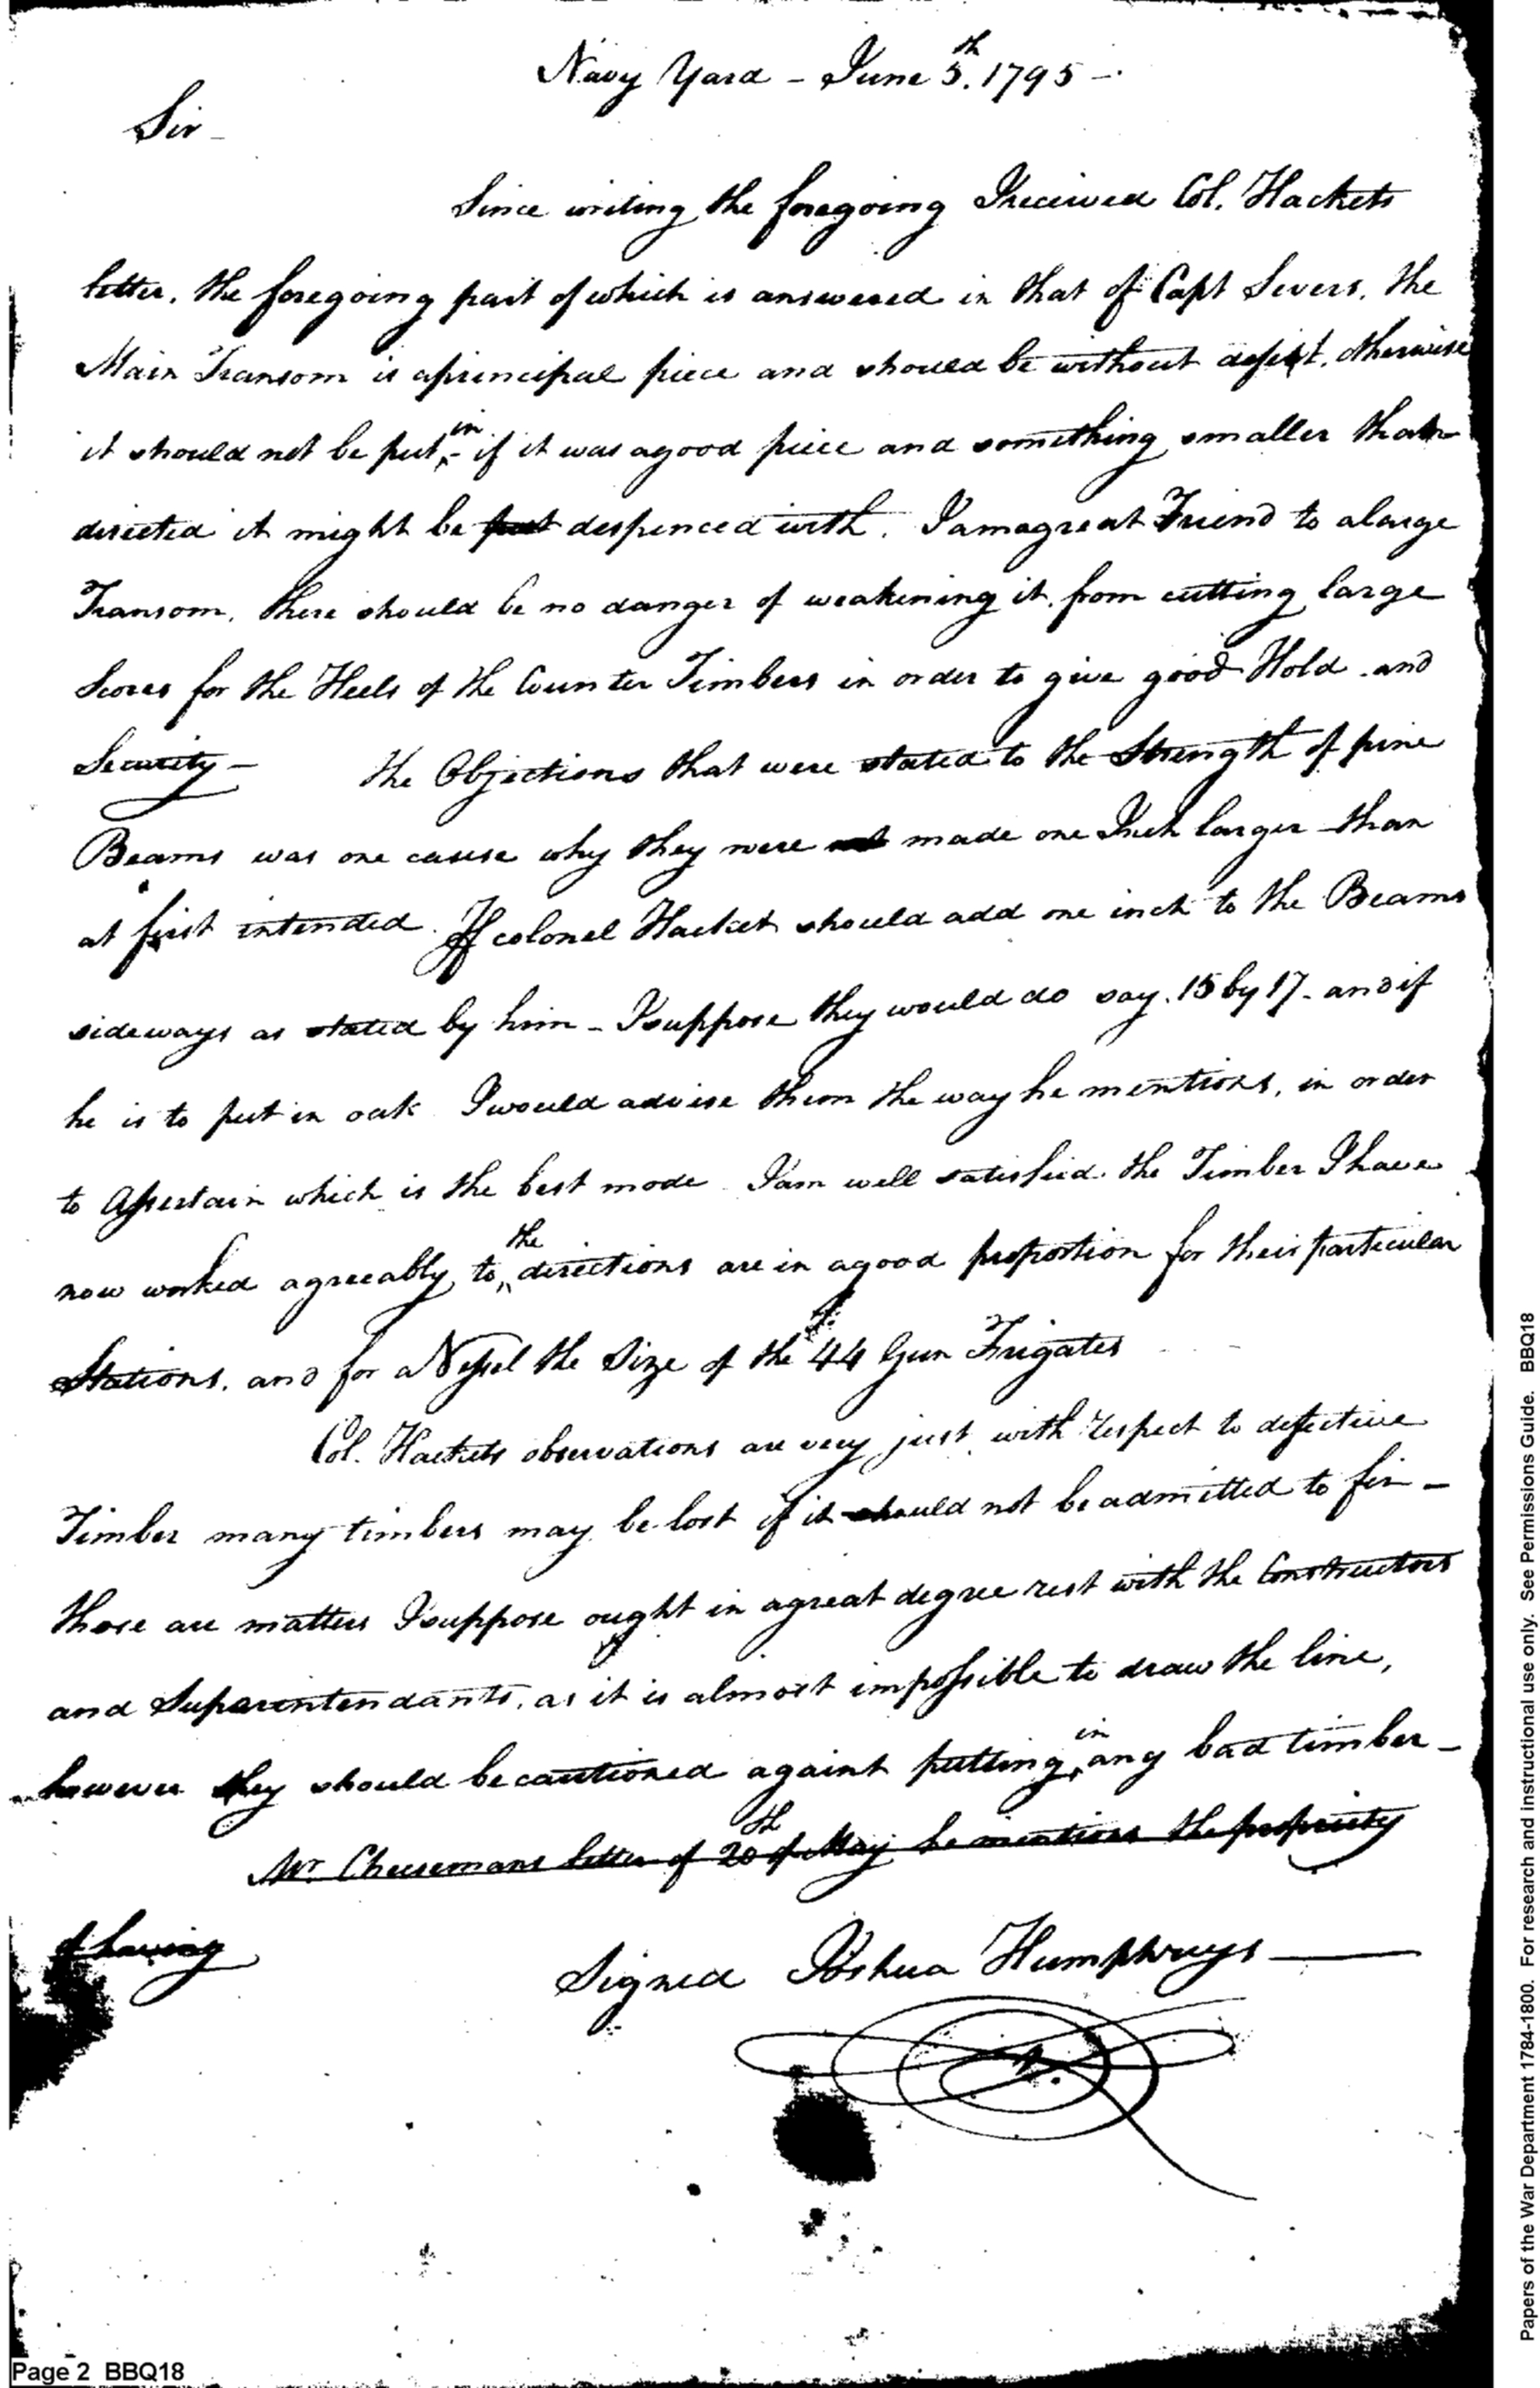 Navy Yard - June 5th. 1795 -
Sir -
Since writing the foregoing I received Col. Hackets
letter, the foregoing part of which is answered in that of Capt Severs, the
Main Transom is a principal piece and should be without defect, otherwise
it should not be put in - if it was a good piece and something smaller than
directed it might be put despenced with. I am a great Friend to a large
Transom, there should be no danger of weakening it, from cutting large
Scores for the Heels of the Counter Timbers in order to give good Hold and
Security - The Objections that were stated to the Strength of pine
Beams was one cause why they were not made one Inch larger than
at first intended. If colonel Hacket should add one inch to the Beams
sideways as stated by him - I suppose they would do say. 15 by 17 - and if
he is to put in oak I would advise them the way he mentions, in order
to Assertain which is the best mode I am well satisfied the Timber I have
now worked agreeably to the directions are in a good proportion for their particular
Stations. and for a Vessel the Size of the 44 Gun Frigates
Col. Hackets observations are very just with respect to defective
Timber many timbers may be lost if it should not be admitted to fir -
those are matters I suppose ought in a great degree rest with the Constructors
and Superintendants, as it is almost impossible to draw the line,
however they should be cautioned againt putting in any bad timber -
Mr. Cheesemans letter of 20th of May he mentions the propriety
of having
Signed Joshua Humphreys
Page 2 BBQ18
Papers of the War Department 1784-1800. For research and instructional use only. See Permissions Guide. BBQ18